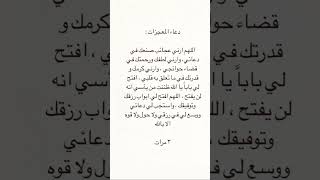 دعاء المعجزات :
اللهم ارني عجائب صنعك في
دعائي، وارني لطفك ورحمتك في
قضاء حوائجي ، وارني كرمك و
قدرتك في ما تعلق به قلبي ، افتح
لي باباً يا الله ظننت من يأسي انه
لن يفتح ، اللهم افتح لي ابواب رزقك
وتوفيقك ، واستجب لي دعائي
ووسع لي في رزقي ولا حول ولا قوه
الا بالله
٣ مرات